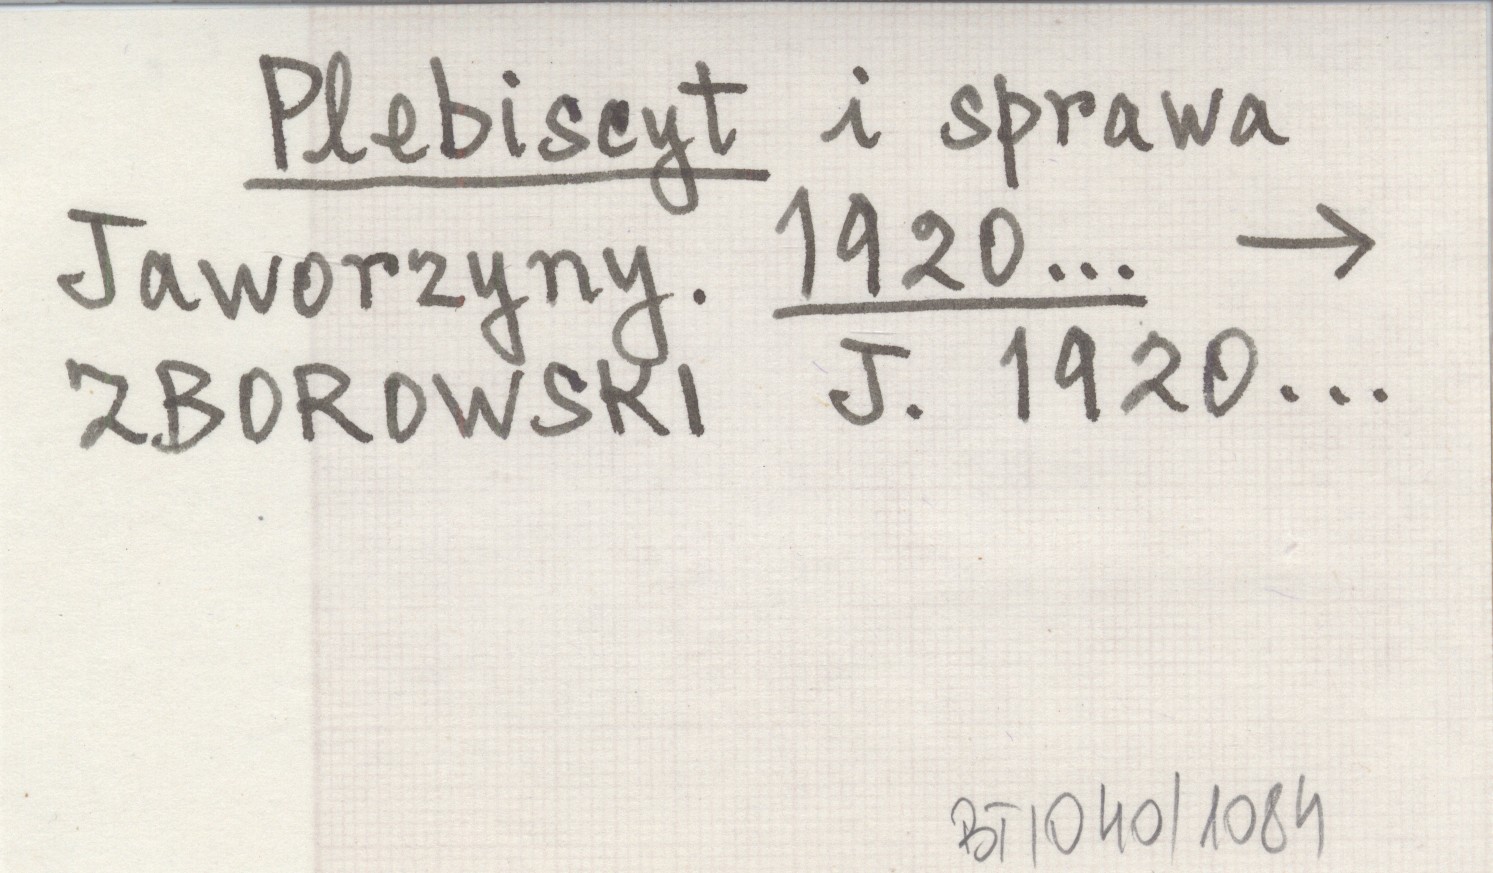 Plebiscyt i sprawa
Jaworzyny. 1920... →
ZBOROWSKI J. 1920...
BT/040/1084